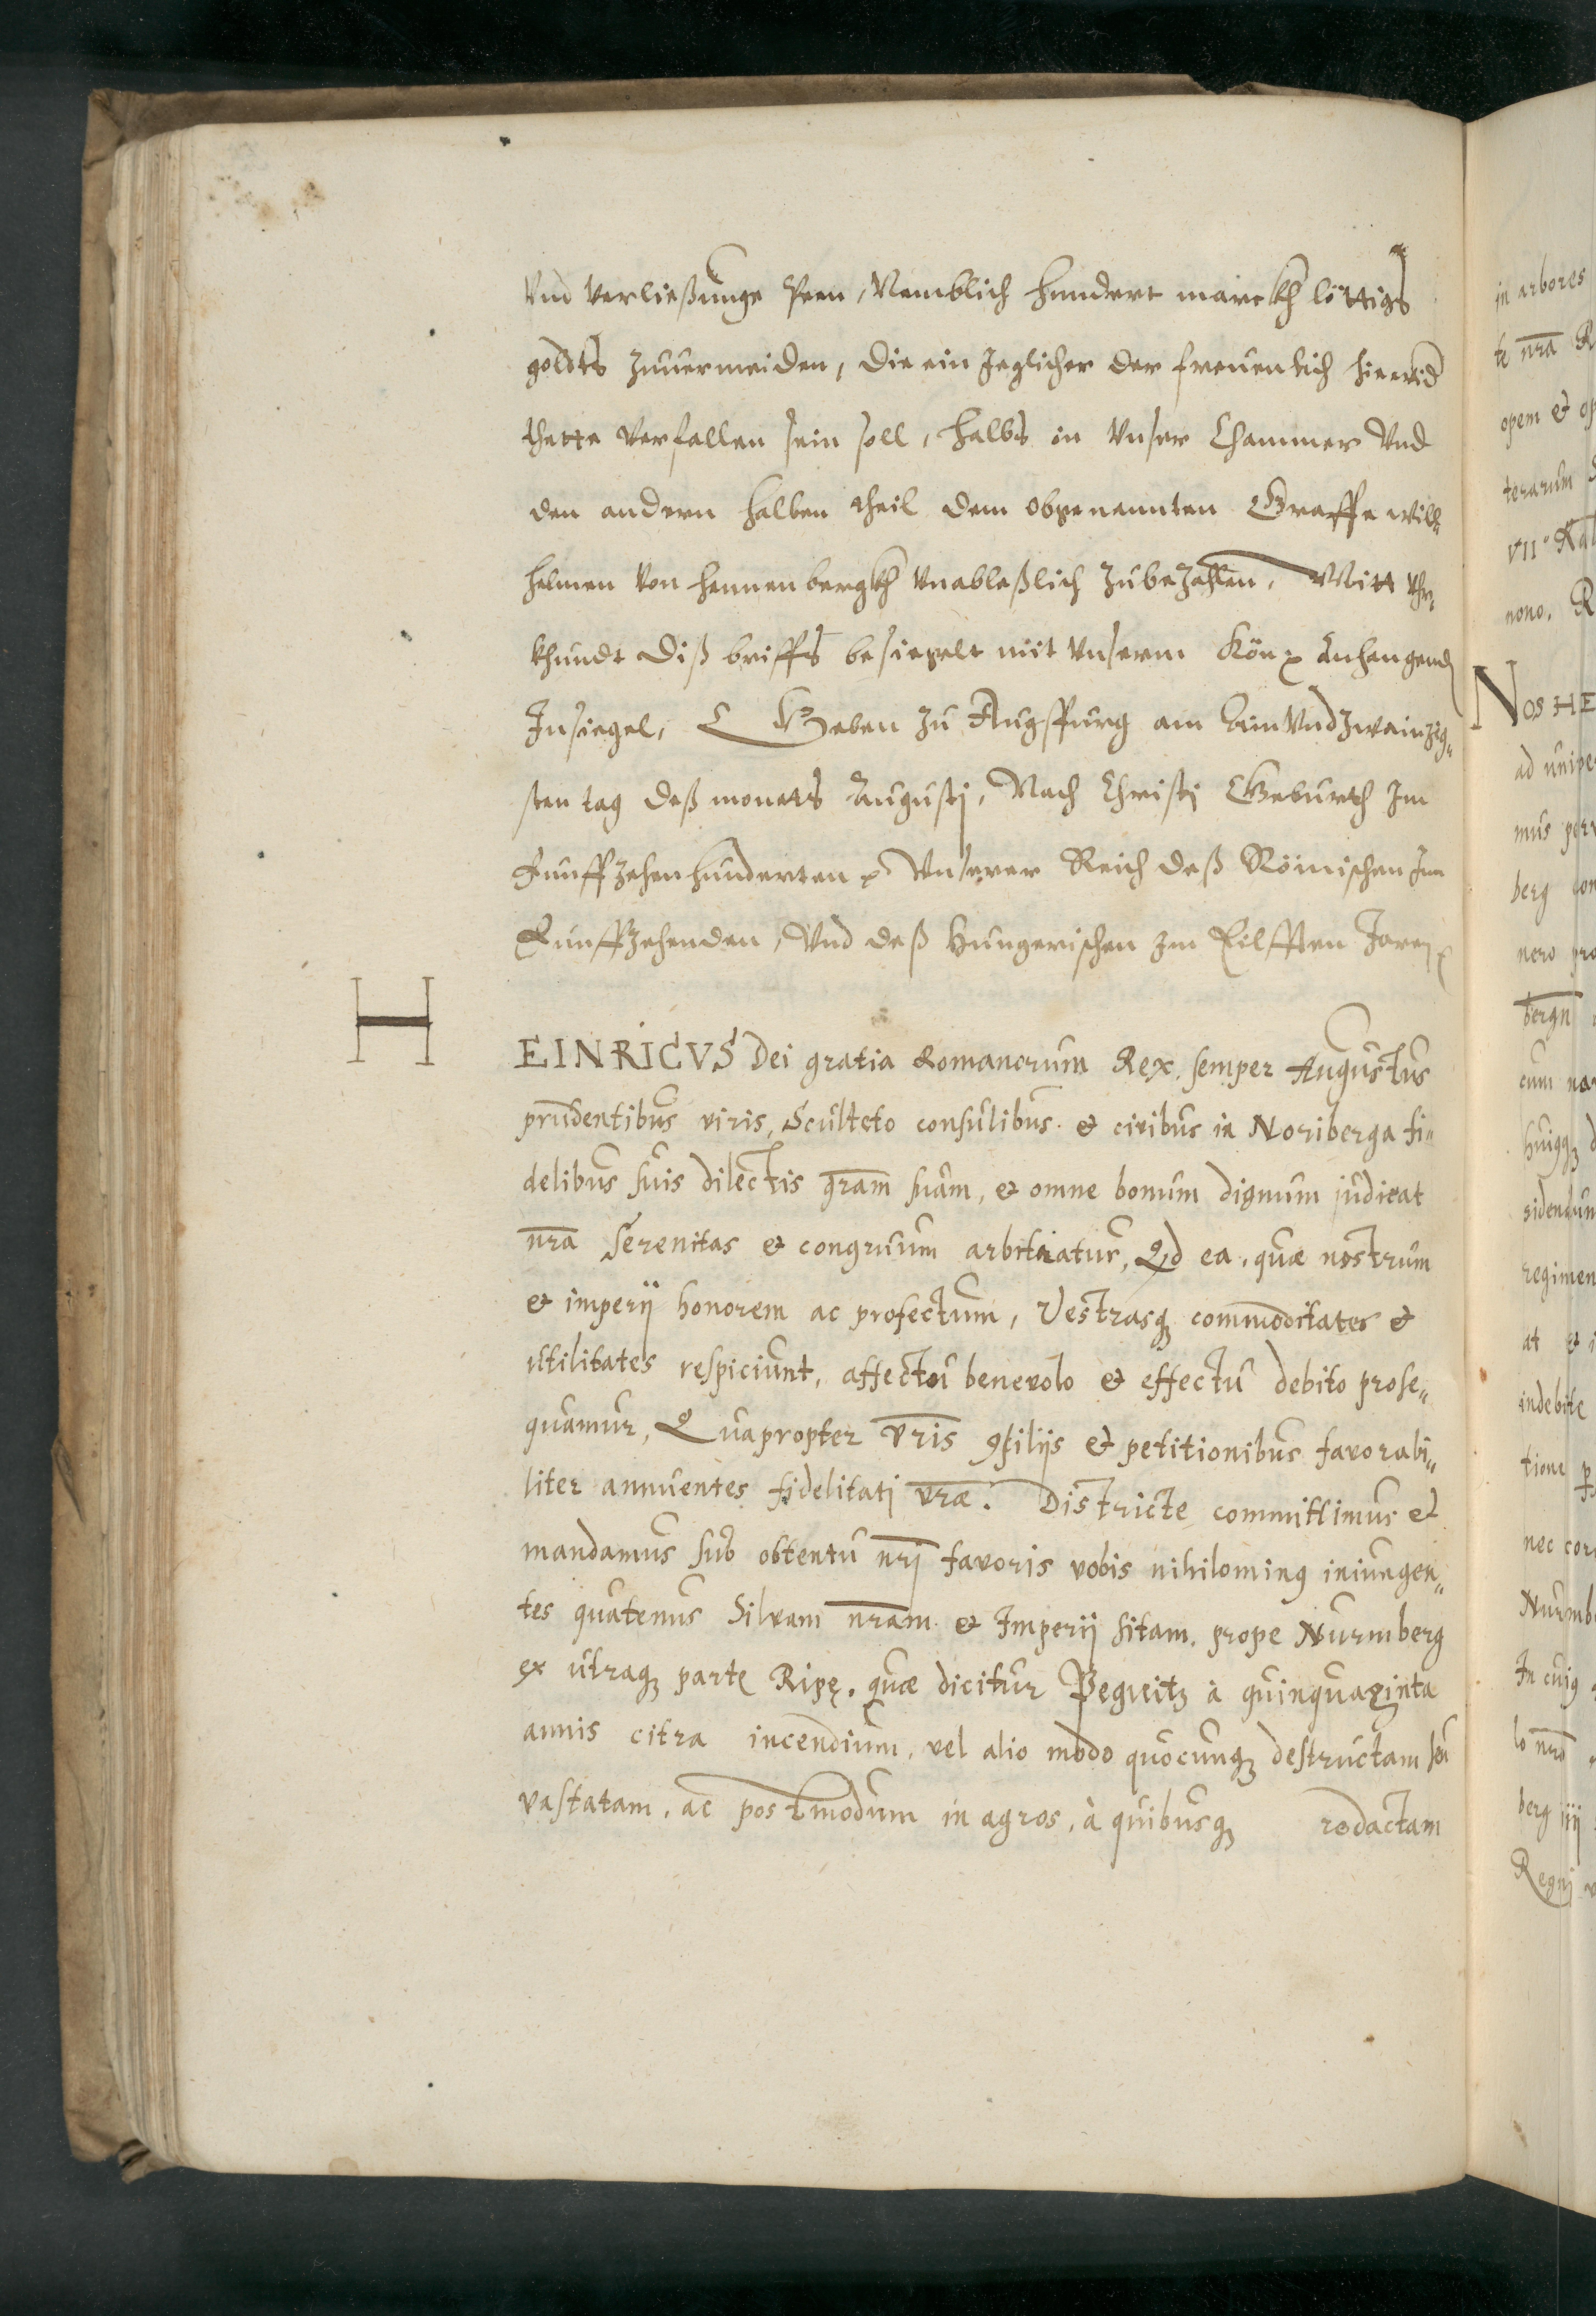 Vnd verließunge Peen, Nemblich hundert marckh löttigs
goldts zuuermeiden, die ein Jeglicher der freuenlich hiewid
thette verfallen sein soll, halbs in Vnser Chammer Vnd
den andern halben theil dem obgenannten Graffe will„
helmen von hennenbergkh vnableßlich zubezahlen, Mitt Vhr„
khundt diß brieffs besiegelt mit Vnserm Kön: Anhangend
Insiegel, Geben zu Augspurg am Ain Vnd zwainzig„
sten tag deß monats Augustj, Nach Christj Geburth Im
Funffzehenhunderten Vnserer Reich deß Römischen Im
Funffzehenden, Vnd deß Hungerischen im Eilfften Jaren
HEINRICVS Dei gratia Romanorum Rex, semper Augustus
prudentibus viris, Sculteto consulibus et civibus in Noriberga fi„
delibus suis dilectis gram suam, et omne bonum dignum judicat
nra Serenitas et congruum arbitratur, Qd ea, quæ nostrum
et imperij honorem ac profectum, Vestrasq commoditates et
vtilitates respiciunt, affectu benevolo et effectu debito prose„
quamur, Quapropter vris ꝯsilijs et petitionibus favorabi„
liter annuentes fidelitatj vræ. Districte committimus et
mandamus sub obtentu nrj favoris vobis nihilominꝰ iniungen„
tes quatenus Silvam nram et Imperij sitam, prope Nurmberg
ex utraq parte Ripę, quæ dicitur Pegneitz à quinquaginta
annis citra incendium, vel alio modo quocunq destructam seu
vastatam, ac postmodum in agros, à quibusq redactam
in arbores
te nra R
opem et op
terarum
VII° Kal
nono. R
NOS HE
ad unive
mus per
berg con
nero pro
bergn
cum na
huiqꝫ d
sidendum
regimen
at et i
indebite
tione p
nec cor
Nurmb
In cuiꝰ
lo nro
berg iij
Regnj